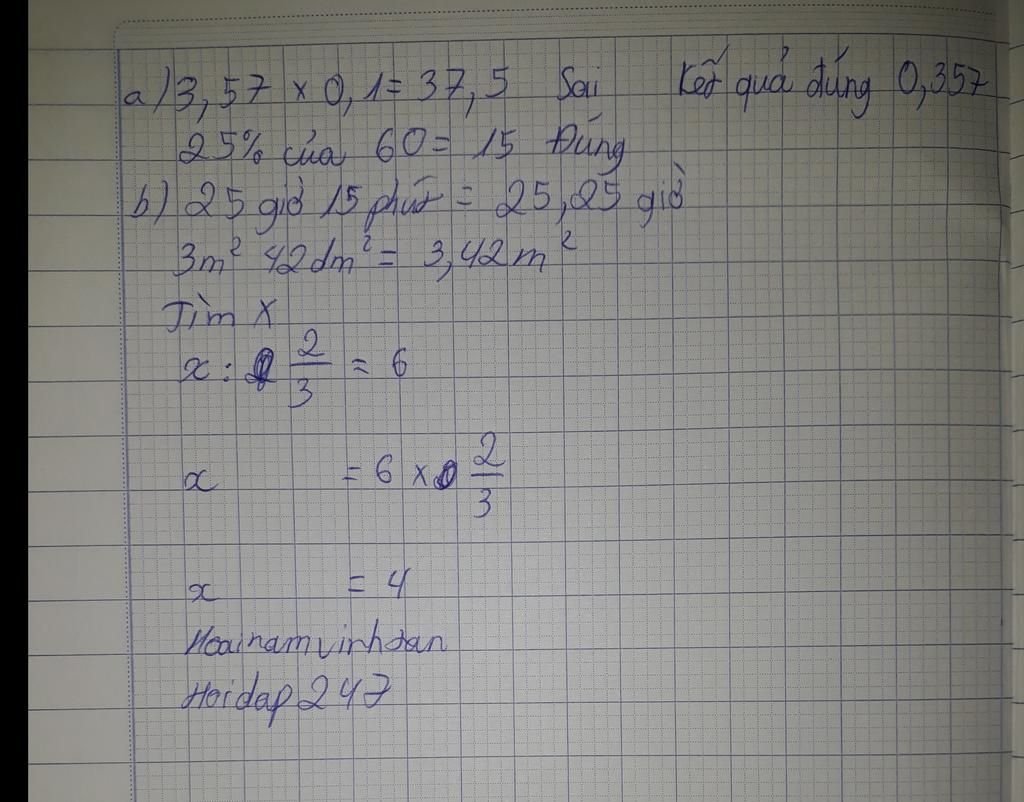 a) 3,57 × 0,1 = 37,5 Sai Kết quả đúng 0,357
25% của 60 = 15 Đúng
b) 25 giờ 15 phút = 25,25 giờ
3m² 42dm² = 3,42m²
Tìm X
x : 2/3 = 6
x = 6 × 2/3
x = 4
Hoainamvinhdan
Hoidap247